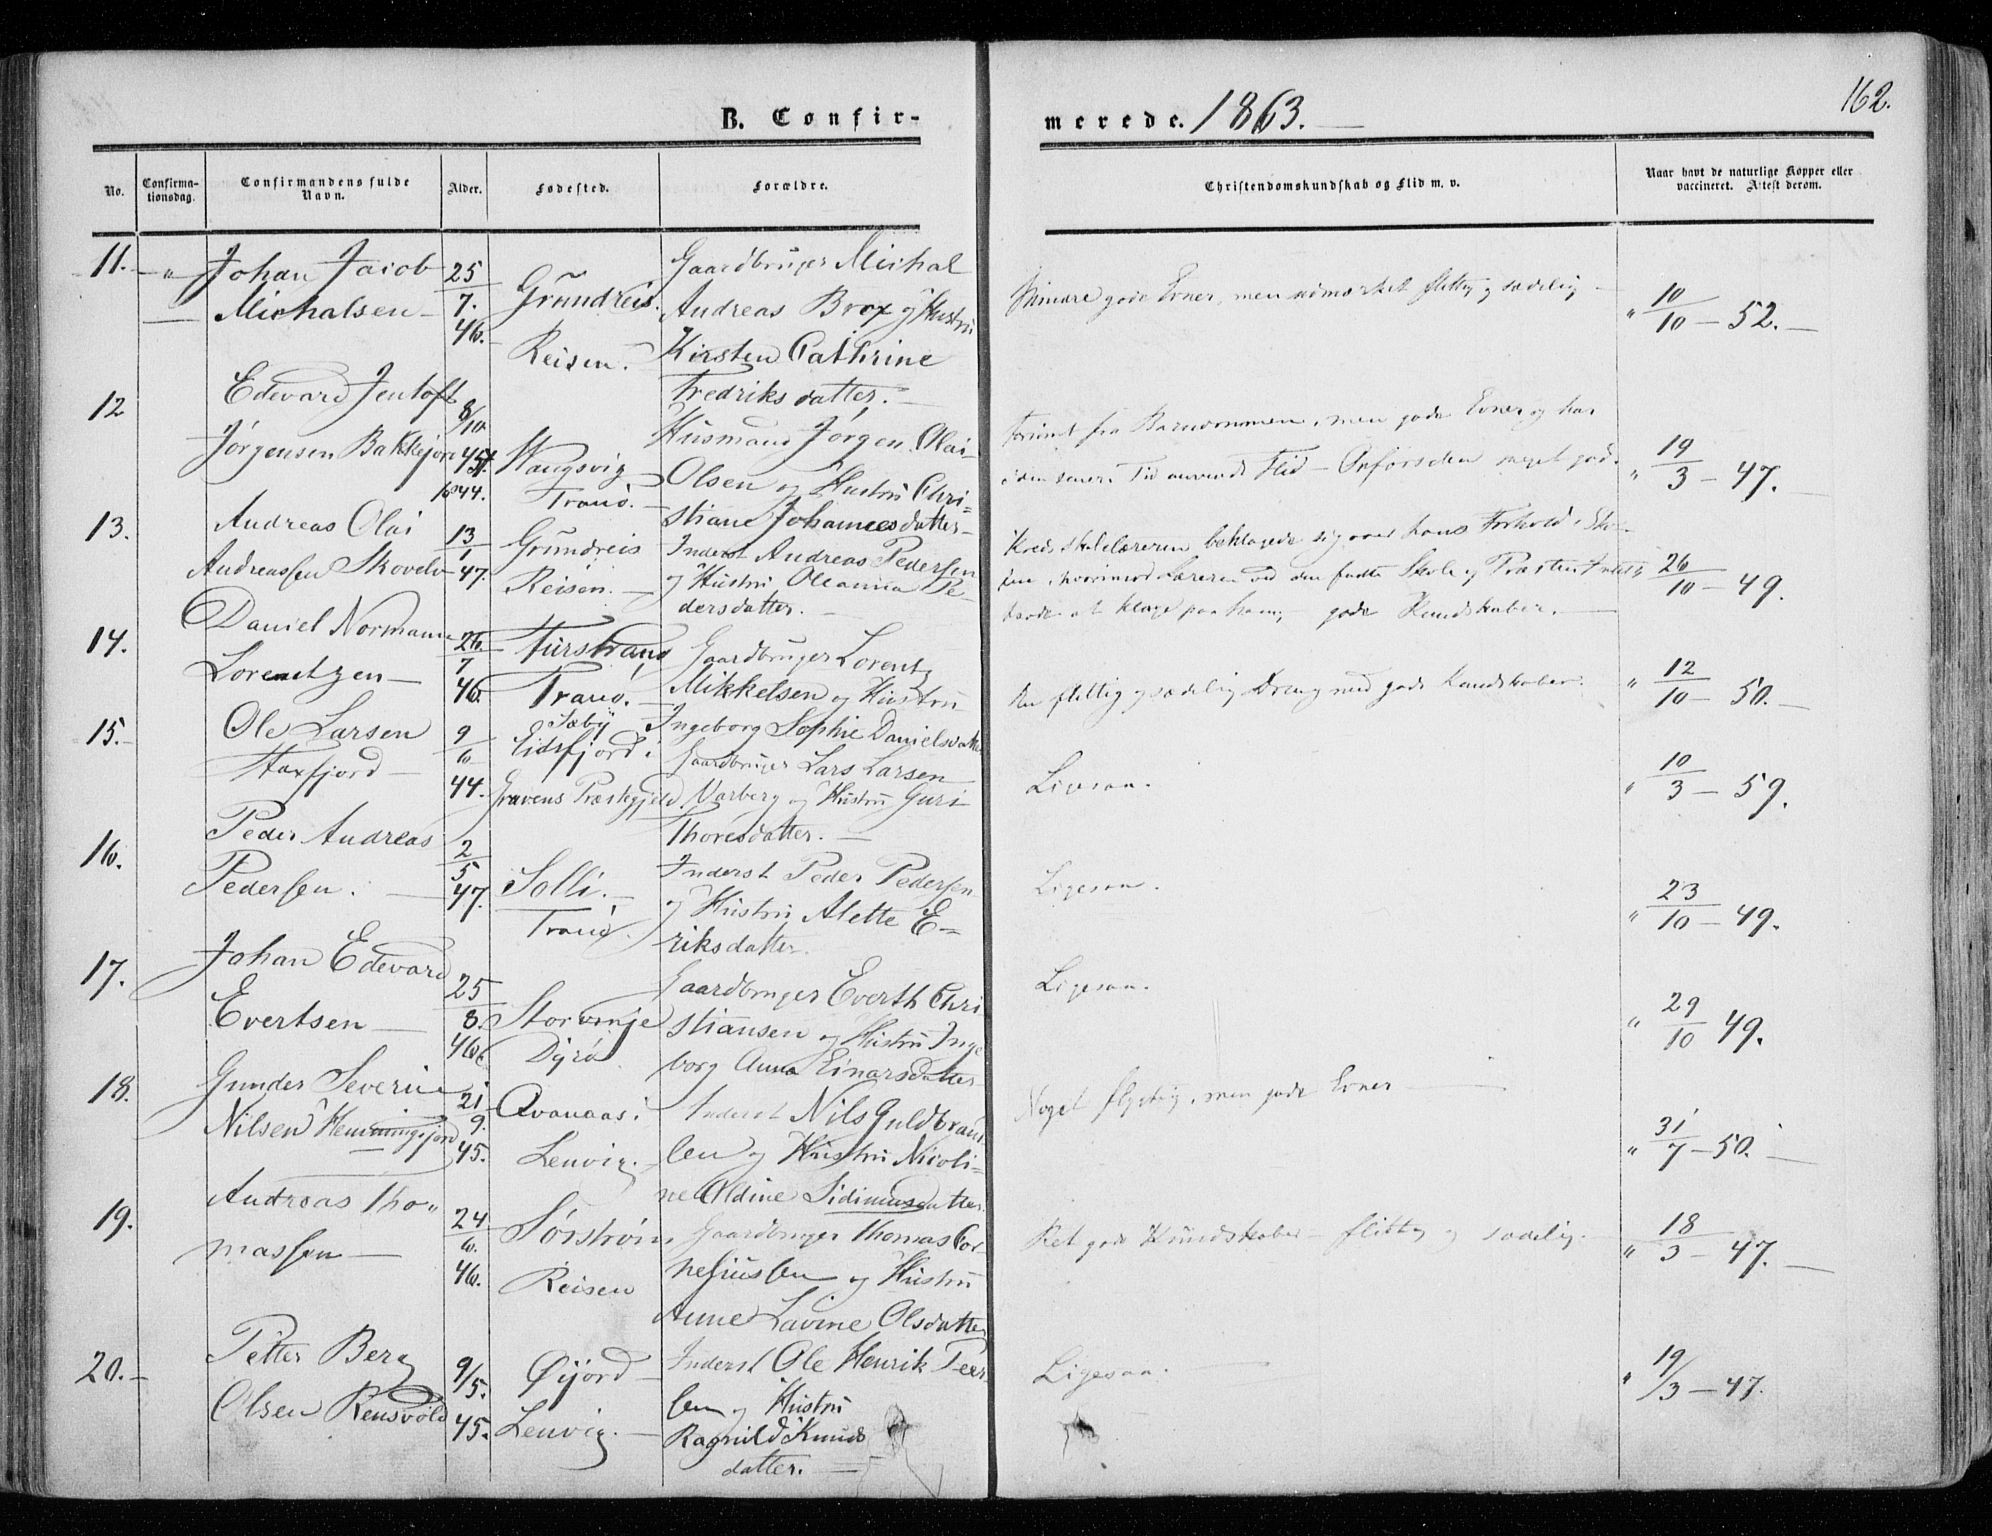 B. Confir-
merede. 1863.
162.
No.
Confirma-
tionsdag.
Confirmandens fulde
Navn.
Alder.
Fødested.
Forældre.
Christendomskundskab og Flid m. v.
Naar havt de naturlige Kopper eller
vaccineret. Attest derom.
11. — "
Johan Jacob
Michalsen —
25
7.
46.
Grundreis.
Reisen.
Gaardbruger Michal
Andreas Brox og Hustru
Kirsten Cathrine
Fredriksdatter. —
gode Evner, men udmærket flittig og sædelig —
" 10
10 — 52. —
12
Edevard Jentoft
Jørgensen Bakkejord
8/10.
1844.
Vangsvig
Tranø. —
Husmand Jørgen Olai
Olsen og Hustru Chri-
stiane Johannesdatter —
Forsømt fra Barndommen, men gode Evner og har
i den senere Tid anvendt Flid — Opførselen meget god.
" 19
3 — 47. —
13.
Andreas Olai
Andreassen Skovelv
13
1
47.
Grundreis
Reisen. —
Inderst Andreas Pedersen
og Hustru Oleanna Pe-
dersdatter. —
Kredsskolelæreren beklagede sig over hans Forhold i Sko-
len, hvorimod Læreren ved den faste Skole og Præsten Intet
havde at klage paa ham; gode Kundskaber. —
" 26
10 — 49.
14.
Daniel Normann
Lorentzen —
26.
7
46.
Furstrand
Tranø. —
Gaardbruger Lorentz
Mikkelsen og Hustru
Ingeborg Sophie Danielsdatter
En flittig og sædelig Dreng med gode Kundskaber.
" 12
10 — 50. —
15. —
Ole Larsen
Staxfjord —
9
6
44.
Sæby
Eidsfjord i
Gravens Præstegjeld.
Gaardbruger Lars Larsen
Varberg og Hustru Guri
Thoresdatter. —
Ligesaa.
" 10
3 — 59.
16.
Peder Andreas
Pedersen. —
2
5
47.
Solli. —
Tranø.
Inderst Peder Pedersen
og Hustru Alette E=
riksdatter.
Ligesaa.
" 23
10 — 49.
17.
Johan Edevard
Evertsen —
25
8.
46.
Storvinje
Dyrø
Gaardbruger Everth Chri
stiansen og Hustru Inge
borg Anna Einarsdatter
Ligesaa.
" 29
10 49.
18.
Gunder Severin
Nilsen Hemmingsjord
21
9.
45.
Qvanaas i
Lenvig. —
Inderst Nils Guldbrand
sen og Hustru Nicoli-
ne Oldine Sidimusdatter.
Noget flygtig, men gode Evner —
" 31
7 — 50. —
19.
Andreas Tho"
massen —
24
6.
46.
Sørstrøm,
Reisen
Gaardbruger Thomas Cor-
neliussen og Hustru
Anne Lavine Olsdatter
Ret gode Kundskaber — flittig og sædelig.
" 18
3 — 47. —
20. —
Petter Berg
Olsen Rensvold
9/5.
45.
Øijord —
Lenvig. —
Inderst Ole Henrik Peer-
sen og Hustru
Ragnild Knuds
datter. —
Ligesaa. —
" 19/3 — 47.